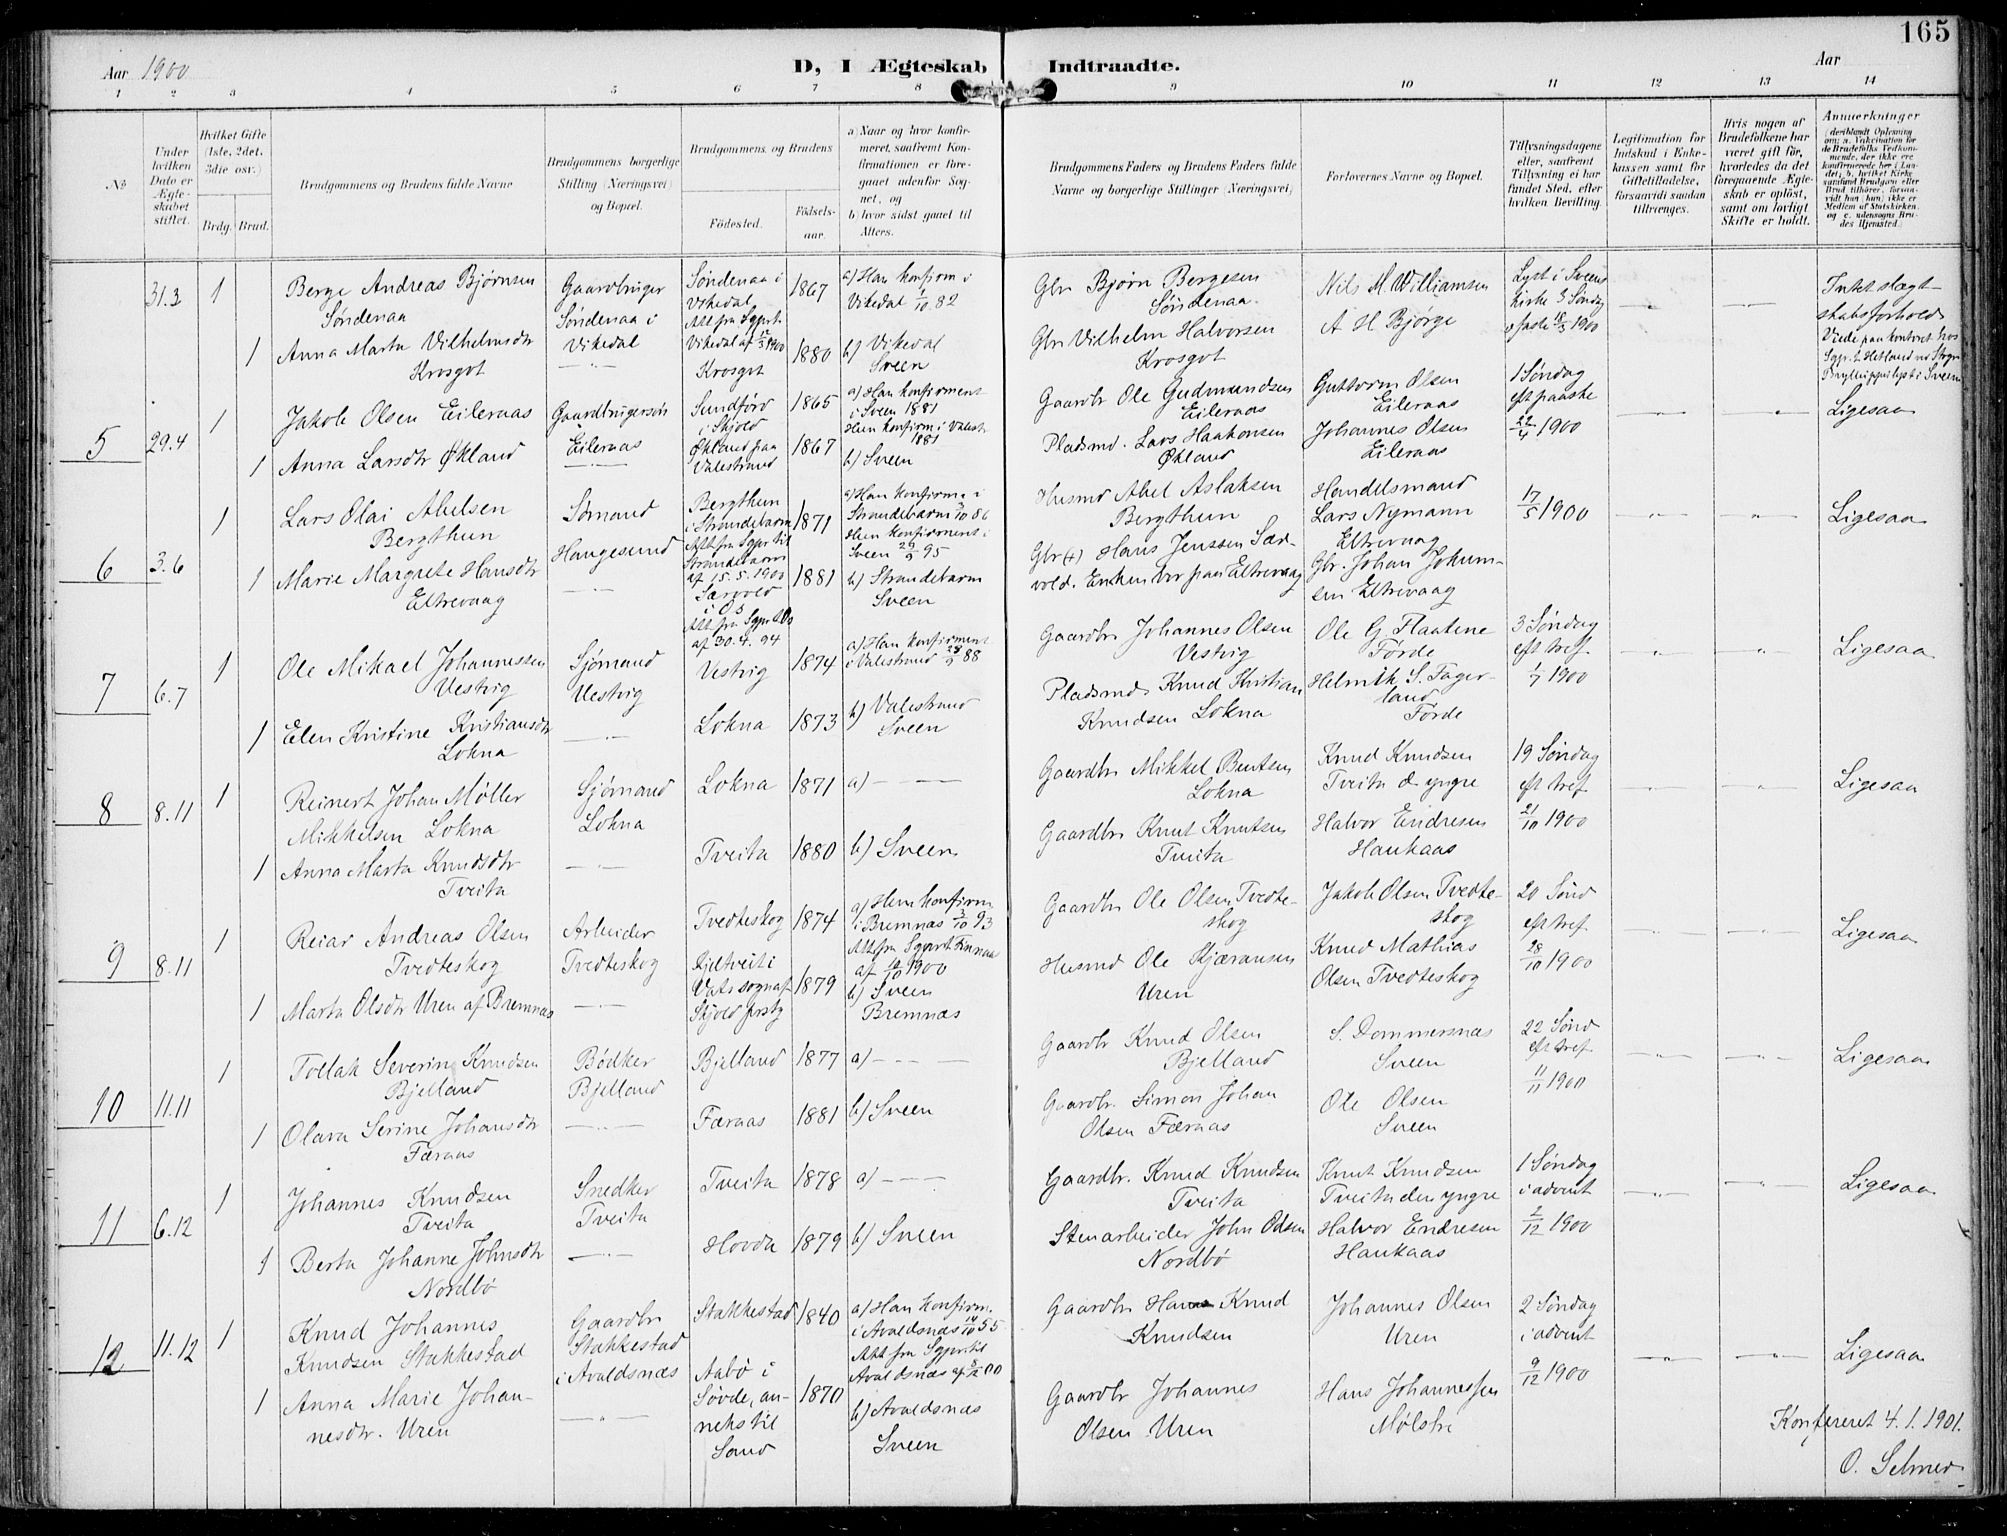 165
Aar 1900
D, I Ægteskab Indtraadte.
Aar
1 2 3 4 5 6 7 8 9 10 11 12 13 14
No
Under hvilken Dato er Ægteskabet stiftet.
Hvilket Gifte (1ste, 2det, 3die osv.)
Brdg. Brud.
Brudgommens og Brudens fulde Navne
Brudgommens borgerlige Stilling (Næringsvei) og Bopæl.
Brudgommens og Brudens
Fødested.
Fødselsaar.
a) Naar og hvor konfirmeret, saafremt Konfirmationen er foregaaet udenfor Sognet, og
b) hvor sidst gaaet til Alters.
Brudgommens Faders og Brudens Faders fulde Navne og borgerlige Stillinger (Næringsvei)
Forlovernes Navne og Bopæl.
Tillysningsdagene eller, saafremt Tillysning ei har fundet Sted, efter hvilken Bevilling.
Legitimation for Indskud i Enkekassen samt for Giftetilladelse, forsaavidt saadan tiltrænges.
Hvis nogen af Brudefolkene har været gift før, hvorledes da det foregaaende Ægteskab er opløst, samt om lovligt Skifte er holdt.
Anmerkninger
31.3 1
Berge Andreas Bjørnsen
Søndenaa
Gaardbruger
Søndenaa i
Vikedal
Søndenaa i
Vikedal
Att fra Sgprt.
Vikedal af 17/3 1900
1867
a) Han konfirm i
Vikedal 1/10.82
Gbr Bjørn Bergesen
Søndenaa
Nils M Williamsen
Lyst i Sveens
Kirke 3 Søndag
i faste 18/3 1900
Intet slægt-
skabsforhold
Viede paa kontoret hos
1
Anna Marta Vilhelmsdtr
Krosgot
Krosgot
1880
b) Vikedal
Sveen
Gbr Vilhelm Halvorsen
Krosgot
A H Bjørge
5 29.4 1
Jakob Olsen Eileraas
Gaardbrugersøn
Eileraas
Sundførd
i Skjold
1865
a) Han konfirment
i Sveen 1881
Hun konfirm i Valestr.
1881
Gaardbr Ole Gudmundsen
Eileraas
Guttorm Olsen
Eileraas
1 Søndag
eft paaske
22/4 1900
Ligesaa
1
Anna Larsdtr Økland
Økland paa
Valestrand
1867
b) Sveen
Pladsmd. Lars Haakonsen
Økland
Johannes Olsen
Eileraas
6 3.6 1
Lars Olai Abelsen
Bergthun
Sømand
Haugesund
Bergthun
i Strandebarm
Att fra Sgpr til
Strandebarm
af 15.5.1900
1871
a) Han konfirm. i
Strandebarm 3/10 86
Hun konfirment i
Sveen 29/9 95
Husmd Abel Aslaksen
Bergthun
Handelsmand
Lars Nymann
Eltrevaag
17/5 1900
Ligesaa
1
Marie Margrete Hansdtr
Eltrevaag
Særvold
i Os
Att fra Sgpr t. Os
af 30.4.94
1881
b) Strandebarm
Sveen
Gbr (+) Hans Jenssen Sær-
vold. Enken bor paa Eltrevaag
Gbr. Johan Jokum-
sen Eltrevaag
7 6.7 1
Ole Mikael Johannessen
Vestvig
Sjømand
Vestvig
Vestvig
1874
a) Han konfirment
i Valestrand 23/9 88
Gaardbr Johannes Olsen
Vestvig
Ole G. Flaatene
Førde
3 Søndag
eft tref
1/7 1900
Ligesaa
1
Elen Kristine Kristiansdtr
Lokna
Lokna
1873
b) Valestrand
Sveen
Pladsmd Knud Kristian
Knudsen Lokna
Helmik S. Fager-
land
Førde
8 8.11 1
Reinert Johan Møller
Mikkelsen Lokna
Sjømand
Lokna
Lokna
1871
a)
Gaardbr Mikkel Bentsen
Lokna
Knud Knudsen
Tveita d yngre
19 Søndag
eft tref
21/10 1900
Ligesaa
1
Anna Marta Knudsdtr
Tveita
Tveita
1880
b) Sveen
Gaardbr Knut Knutsen
Tveita
Halvor Endresen
Haukaas
9 8.11 1
Reiar Andreas Olsen
Tvedteskog
Arbeider
Tvedteskog
Tvedteskog
1874
a) Hun konfirm
i Bremnæs 3/10 93
Att fra Sgprt Finnaas
af 12/10 1900
Gaardbr Ole Olsen Tvedte-
skog
Jakob Olsen Tvedte-
skog
20 Sønd
eft tref
28/10 1900
Ligesaa
1
Marta Olsdtr Uren af Bremnæs
Kjeltveit i
Vats sogn af
Skjold prstg
1879
b) Sveen
Bremnæs
Husmd Ole Kjæransen
Uren
Knud Mathias
Olsen Tvedteskog
10 11.11 1
Tollak Severin Knudsen
Bjelland
Bødker
Bjelland
Bjelland
1877
a)
Gaardbr Knud Olsen
Bjelland
S. Dommersnæs
Sveen
22 Sønd
eft tref
11/11 1900
Ligesaa
1
Olava Serine Johansdtr
Færaas
Færaas
1881
b) Sveen
Gaardbr. Simon Johan
Olsen Færaas
Ole Olsen
Sveen
11 6.12 1
Johannes Knudsen
Tveita
Snedker
Tveita
Tveita
1878
a)
Gaardbr. Knud Knudsen
Tveita
Knut Knudsen
Tveita den yngre
1 Søndag
i advent
2/12 1900
Ligesaa
1
Berta Johanne Johnsdtr
Nordbø
Hovda
1879
b) Sveen
Stenarbeider John Odsen
Nordbø
Halvor Endresen
Haukaas
12 11.12 1
Knud Johannes
Knudsen Stakkestad
Gaardbr
Stakkestad
i Avaldsnæs
Stakkestad
1840
a) Han konfirm.
i Avaldsnæs 14/10 55
Att fra Sgpr til
Avaldsnæs af 8/12 00
Gaardbr Knud
Knudsen
Johannes Olsen
Uren
2 Søndag
i advent
9/12 1900
Ligesaa
1
Anna Marie Johan-
nesdtr. Uren
Aabø i
Søvde, an-
neks til
Sand
1870
b) Avaldsnæs
Sveen
Gaardbr Johannes
Olsen Uren
Hans Johannessen
Mølstre
Konfereret 4.1.1901.
O. Selmer